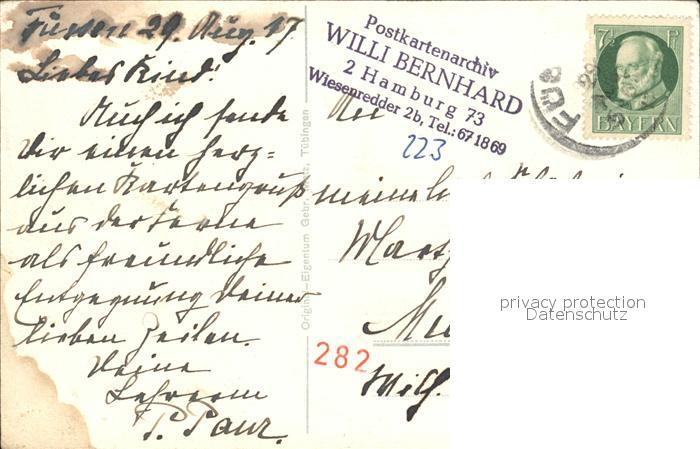 Füssen 29. Aug. 17
Liebes Kind!
Auch ich sende
Dir einen herz=
lichen Kartengruß
aus der Ferne
als freundliche
Entgegnung Deiner
lieben Zeilen.
Deine
Lehrerin
P. Panz.
Original-Eigentum Gebr. Metz, Tübingen
Postkartenarchiv
WILLI BERNHARD
2 Hamburg 73
Wiesenredder 2b, Tel.: 67 18 69
223
7½ Pf
BAYERN
FÜS
An
meine
282
Wilh.
privacy protection
Datenschutz